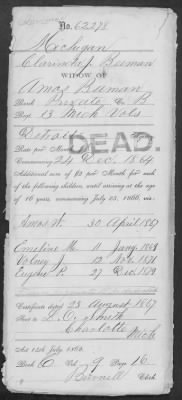 No. 62278
Michigan
Clarinda J. Beeman
WIDOW OF
Amos Beeman
Rank Private Co. B
Reg. 13 Mich Vols
Detroit
DEAD.
Rate per Month
Commencing 24 Dec. 1864
Additional sum of $2 per Month for each
of the following children, until arriving at the age
of 16 years, commencing July 25, 1866, viz:
Amos W. 30 April 1867
Emeline M. 11 Jany. 1869
Volney J. 12 Nov. 1871
Eugene P. 27 Dec. 1879
Certificate dated 23 August 1867
Sent to L. O. Smith
Charlotte
Mich
Act 14th July, 1862.
Book Vol. 9 Page 16
Clerk.